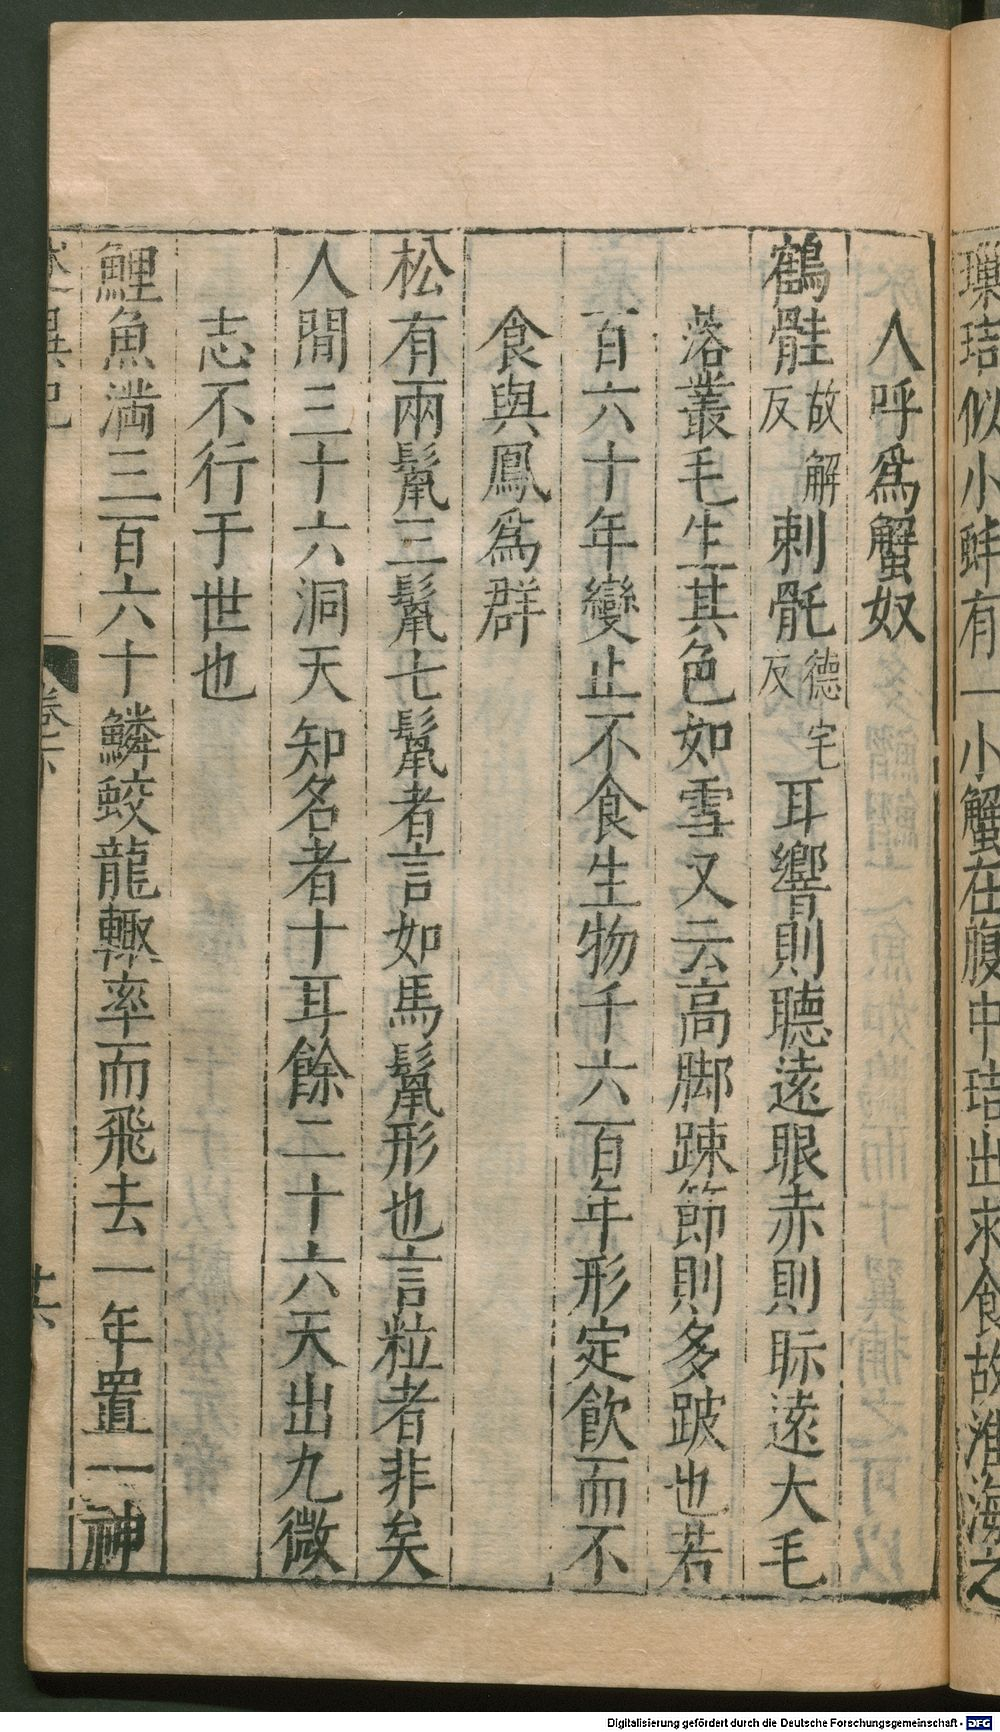 璅琣似小蚌有一小蟹在腹中琣出求食故淮海之
人呼爲蟹奴
鶴䯓故解反刺骩德宅反耳響則聽遠眼赤則眎遠大毛
落叢毛生其色如雪又云高脚踈節則多跛也若
百六十年變止不食生物千六百年形定飲而不
食與鳳爲群
松有兩鬣三鬣七鬣者言如馬鬣形也言粒者非矣
人間三十六洞天知名者十耳餘二十六天出九微
志不行于世也
鯉魚滿三百六十鱗蛟龍輙率而飛去一年置一神
述異記 卷下 廿六
Digitalisierung gefördert durch die Deutsche Forschungsgemeinschaft - DFG